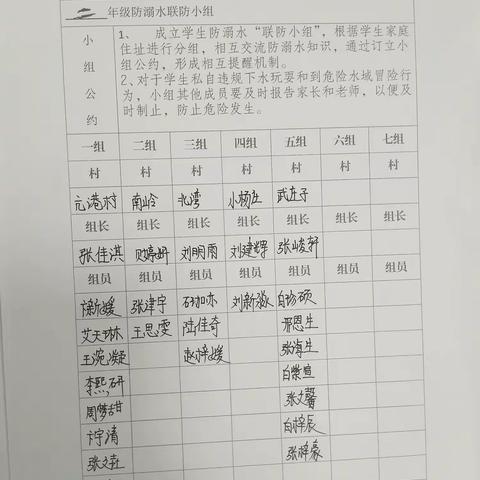 二 年级防溺水联防小组
小组公约
1、 成立学生防溺水“联防小组”，根据学生家庭
住址进行分组，相互交流防溺水知识，通过订立小
组公约，形成相互提醒机制。
2、对于学生私自违规下水玩耍和到危险水域冒险行
为，小组其他成员要及时报告家长和老师，以便及
时制止，防止危险发生。
一组 二组 三组 四组 五组 六组 七组
村 村 村 村 村 村 村
元港村 南岭 北湾 小杨庄 武庄子
组长 组长 组长 组长 组长 组长 组长
张佳淇 刘明雨 刘建辉 张峻轩
组员 组员 组员 组员 组员 组员 组员
张津宇 刘新淼
艾天琳 王思雯 陆佳奇 邢恩生
赵梓媛 张海生
李熙研 白紫萱
周梦甜 张文馨
卞宇清 白梓辰
张文 张梓豪